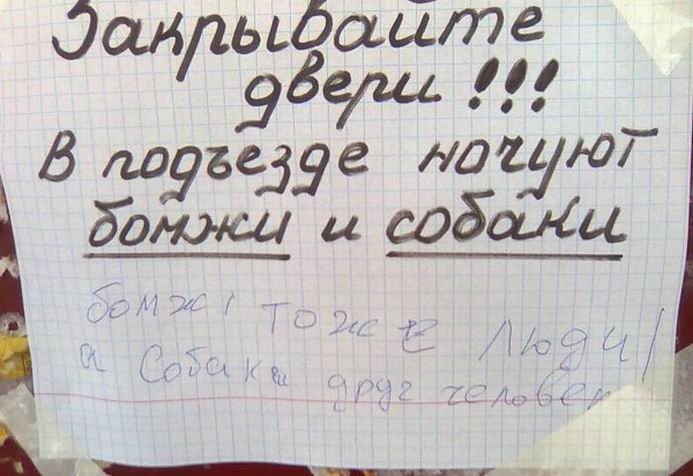 Закрывайте
двери!!!
В подъезде ночуют
бомжи и собаки
бомжі тоже люди!
а собака друг человек